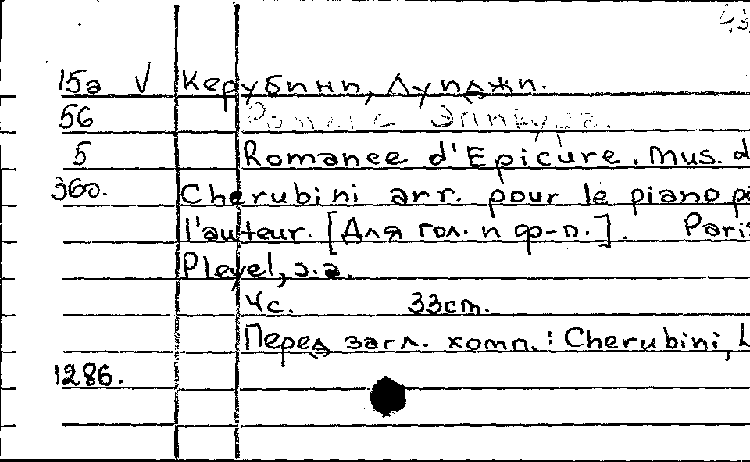 43
15а V Керубини, Луиджи.
56 Романс Эпикура.
5 Romance d'Epicure. Mus. d
360. Cherubini arr. pour le piano
l'auteur. [Для гол. и ф-п.]. Paris
Pleyel, s.a.
4с. 33cm.
Перед загл. комп.: Cherubini, L
1286.